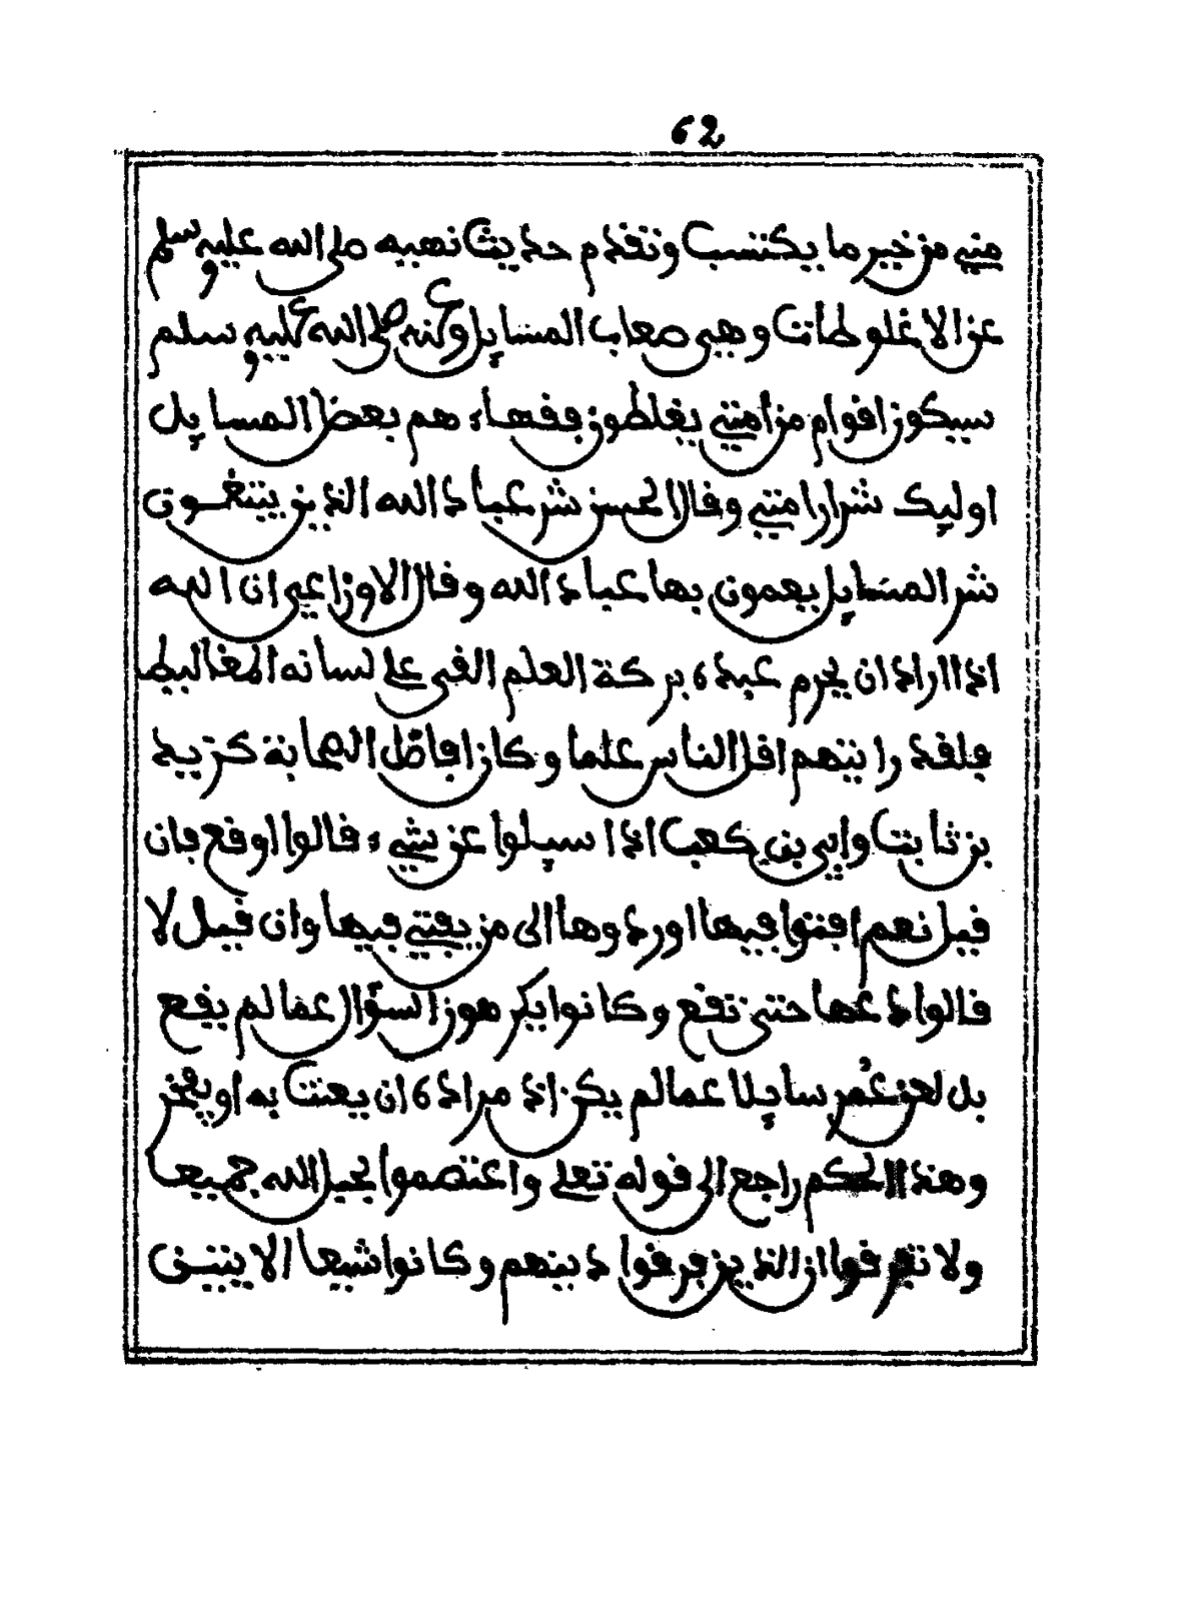 62
منه من خير ما يكتسب وتقدم حديث نهيه صلى الله عليه وسلم
عن الاغلوطات وهي صعاب المسايل وعنه صلى الله عليه وسلم
سيكون اقوام من امتي يغلطون فقهاءهم بعض المسايل
اوليك شرار امتي وقال الحسن شر عباد الله الذين يتبغون
شر المسايل يعمون بها عباد الله وقال الاوزاعي ان الله
اذا اراد ان يحرم عبده بركة العلم القى على لسانه المغاليط
فلقد رايتهم اقل الناس علما وكان افاضل الصحابة كزيد
بن ثابت وابي بن كعب اذا سيلوا عن شيء قالوا اوقع فان
قيل نعم افتوا فيها او ردوها الى من يفتي فيها وان قيل لا
قالوا دعها حتى تقع وكانوا يكرهون السؤال عما لم يقع
بل لعن عُمر سايلا عما لم يكن اذ مراده ان يعنت به او يفخر
وهذا الحكم راجع الى قوله تعلى واعتصموا بحبل الله جميعا
ولا تفرقوا ان الذين فرقوا دينهم وكانوا شيعا الا يتيـن